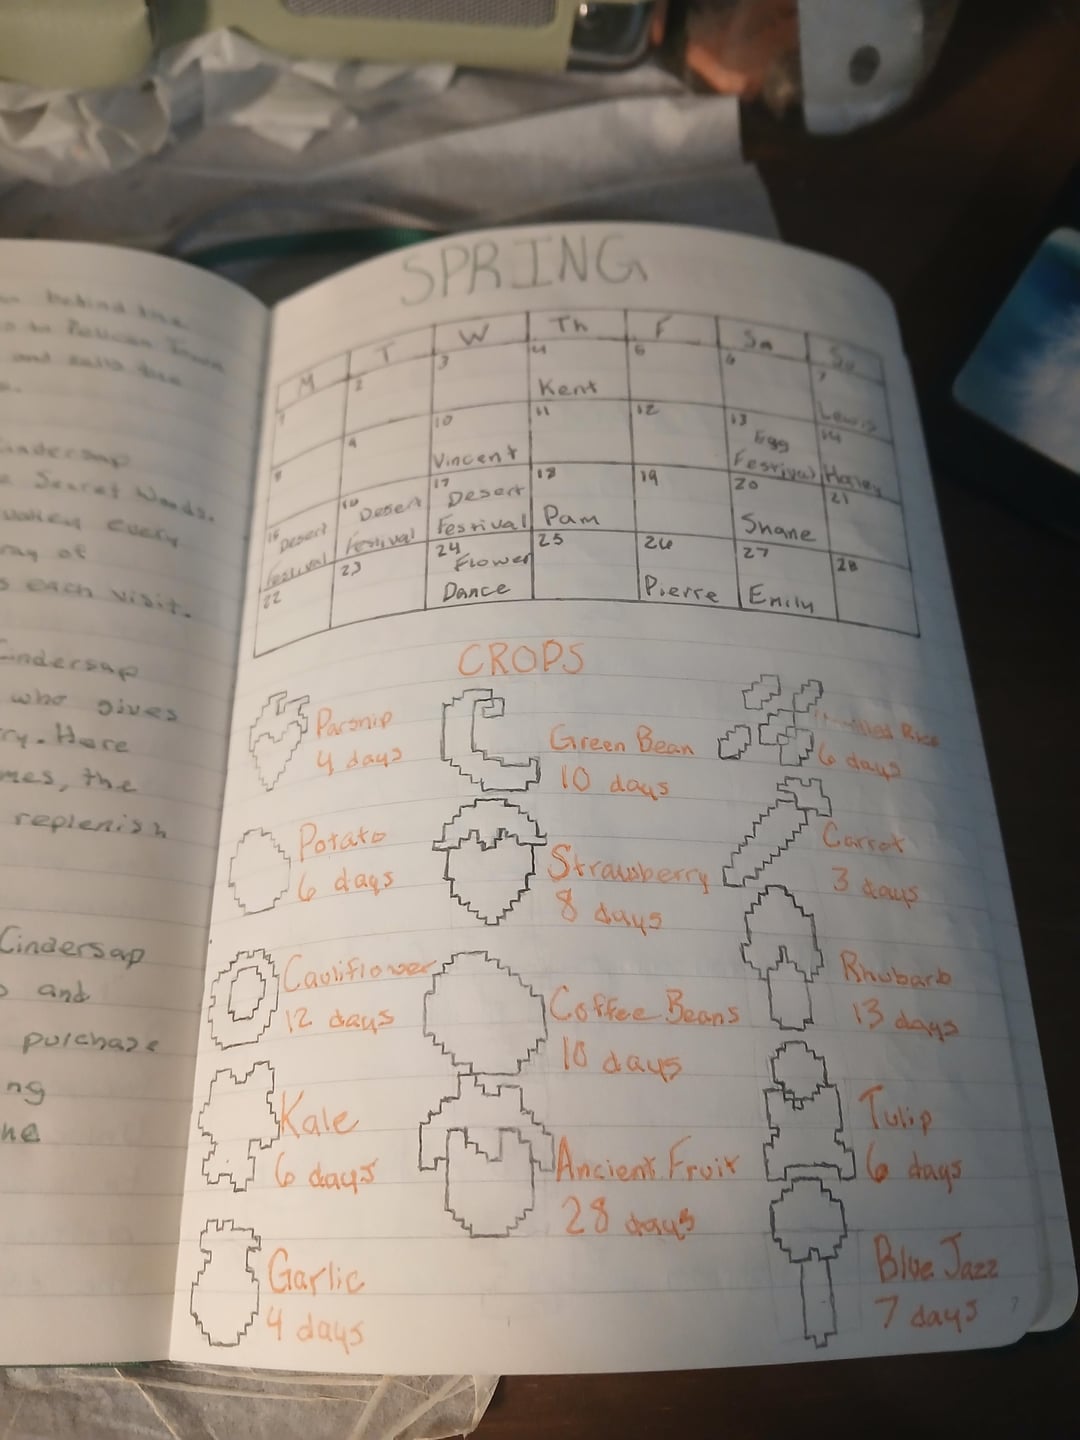 behind the
to Pelican Town
and sells
Cindersap
Secret Woods.
valley every
ray of
each visit.
Cindersap
who gives
ry. Here
mes, the
replenish
Cindersap
and
purchase
ng
he
SPRING
M T W Th F Sa Su
1 2 3 4 5 6 7
Kent Lewis
8 9 10 11 12 13 14
Vincent Egg Festival Haley
15 16 17 18 19 20 21
Desert Festival Desert Festival Desert Festival Pam Shane
22 23 24 25 26 27 28
Flower Dance Pierre Emily
CROPS
Parsnip
4 days
Green Bean
10 days
Unmilled Rice
6 days
Potato
6 days
Strawberry
8 days
Carrot
3 days
Cauliflower
12 days
Coffee Beans
10 days
Rhubarb
13 days
Kale
6 days
Ancient Fruit
28 days
Tulip
6 days
Garlic
4 days
Blue Jazz
7 days
7